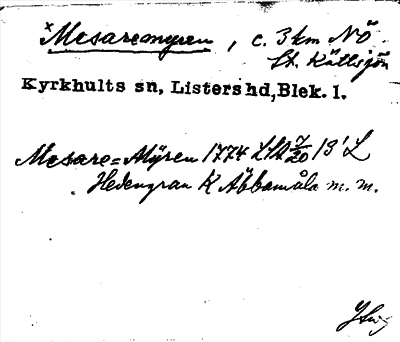 ×Mesaremyren, c. 3 km NÖ
St. Kättsjön
Kyrkhults sn, Listers hd, Blek. l.
Mesare=Myren 1774 LSA 7/20 13' L
Hedengran K Äbbamåla m. m.